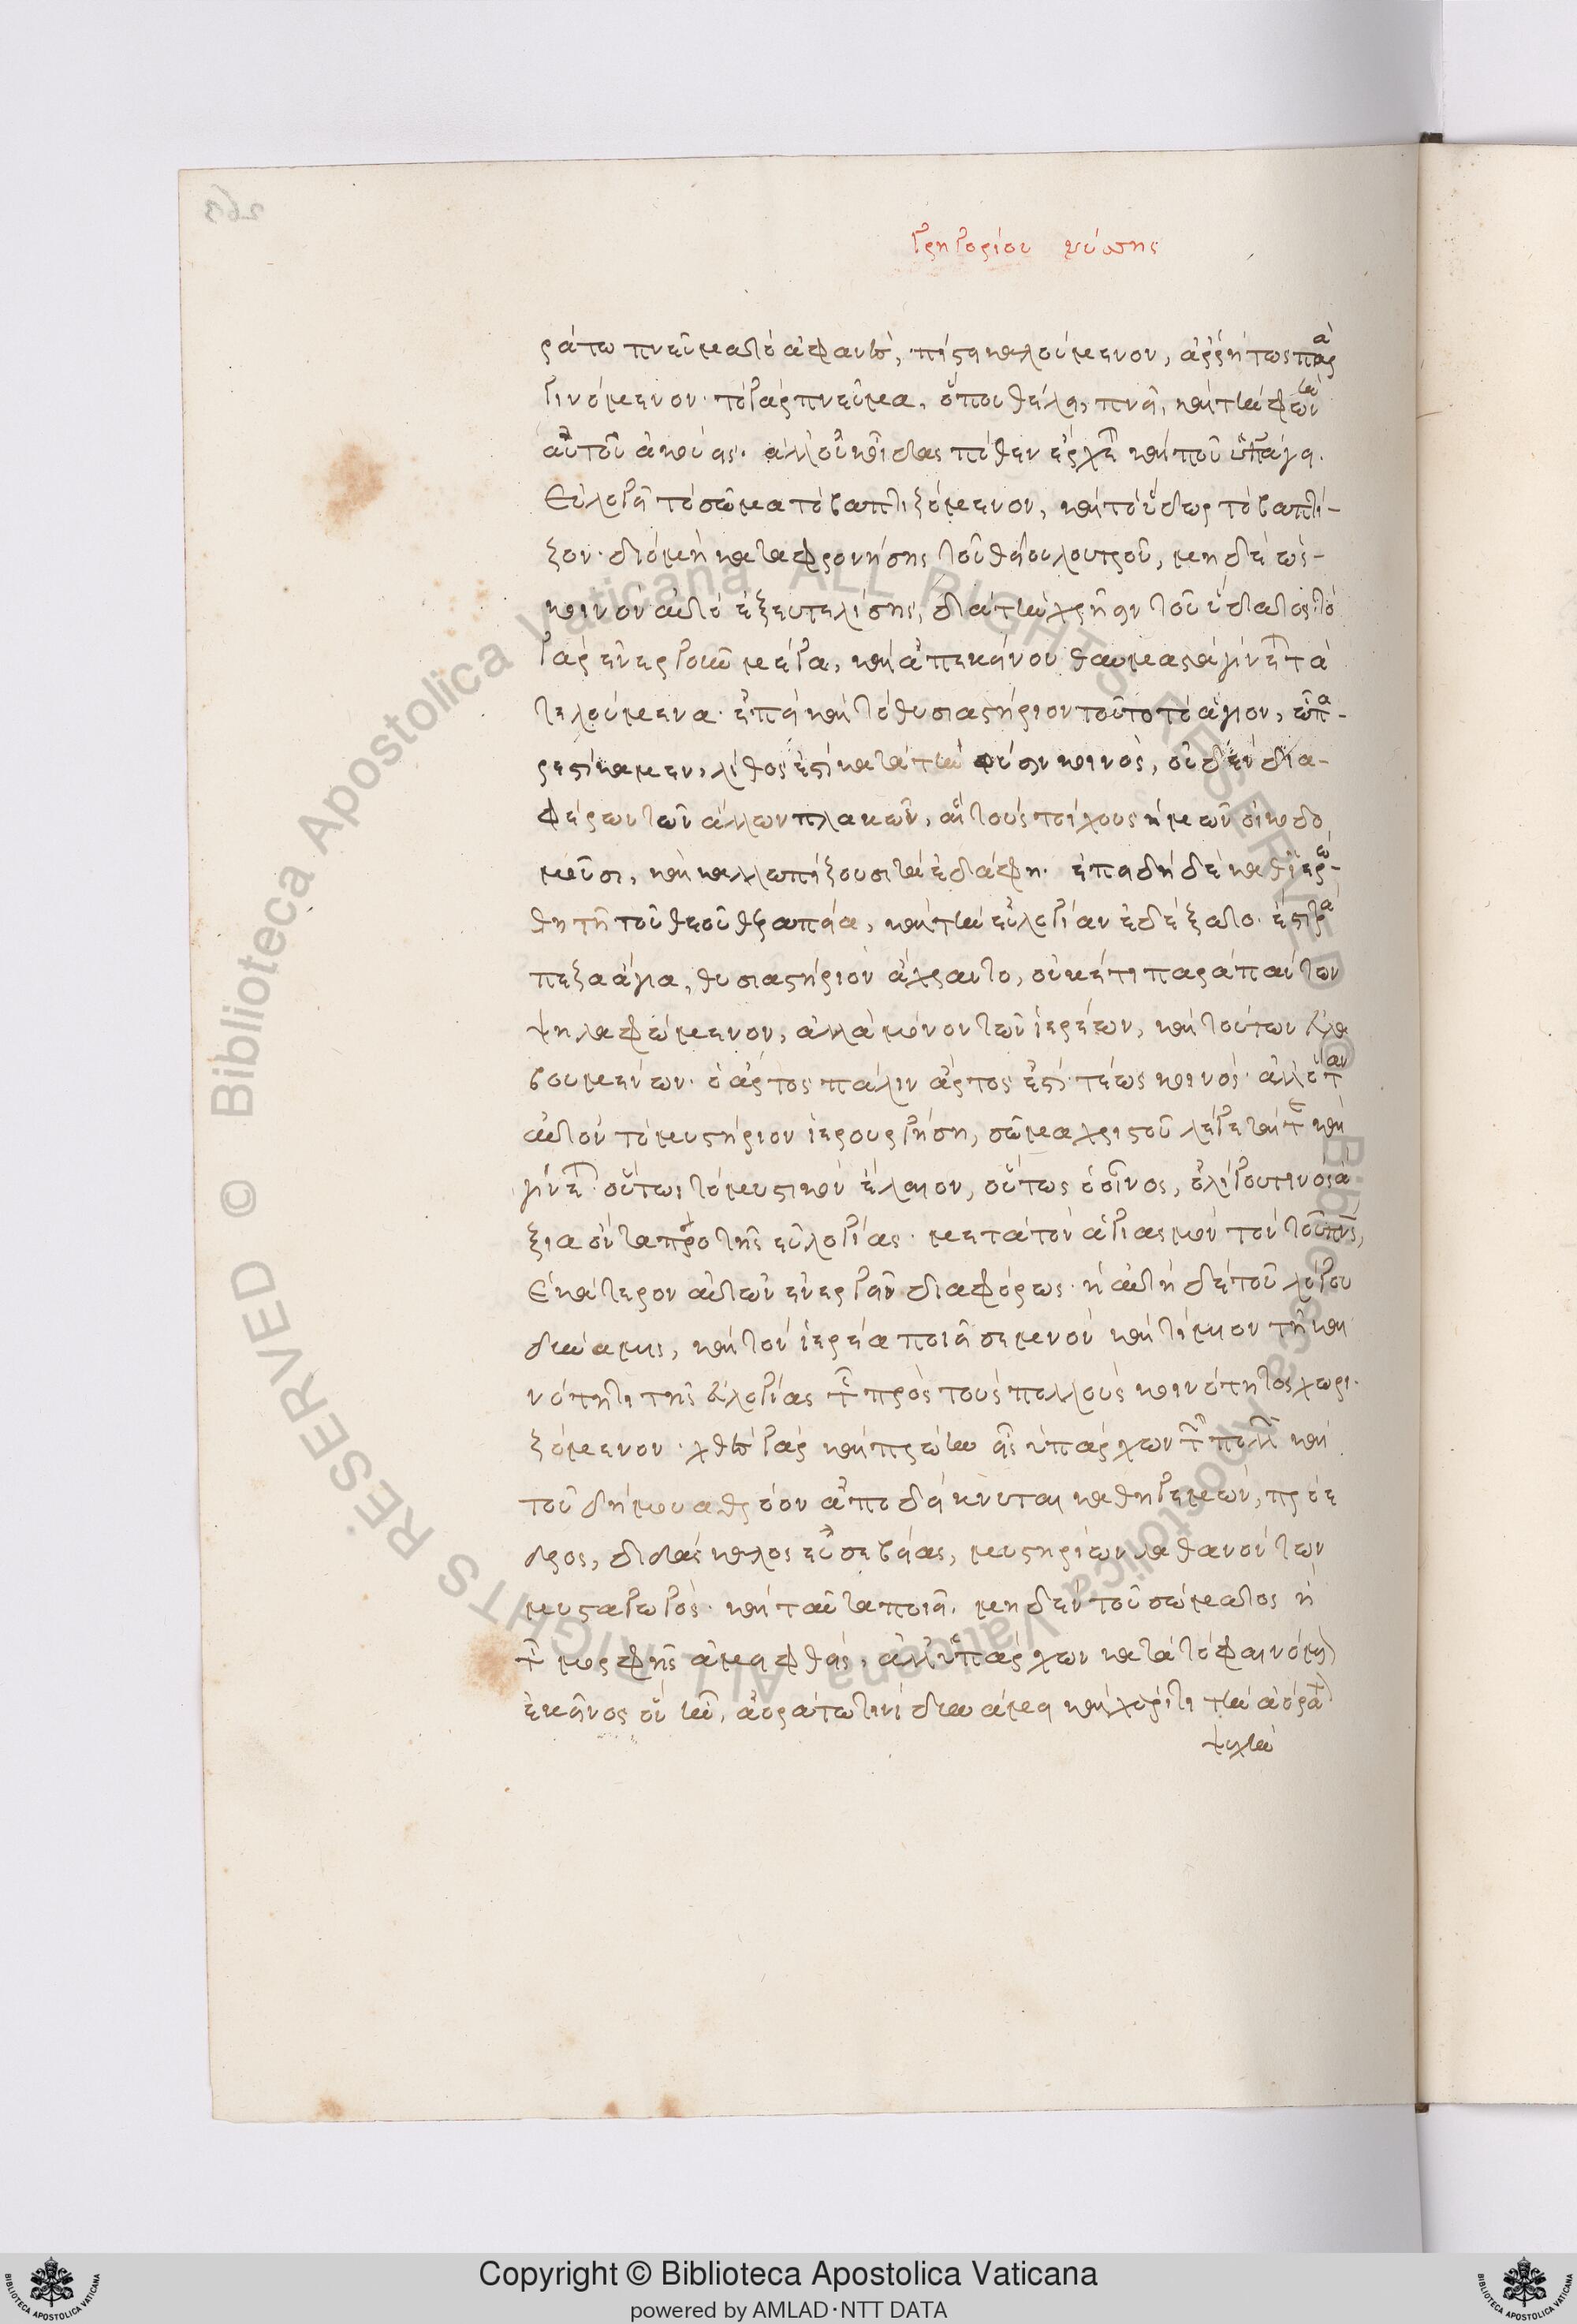 263
Γρηγορίου νύσσης
ράτω πνεῦμα τὸ ἀφανὲς, πίστει καλούμενον, ἀρρήτως παρα
γινόμενον· τὸ γὰρ πνεῦμα, ὅπου θέλει, πνεῖ, καὶ τὴν φωνὴν
αὐτοῦ ἀκούεις. ἀλλ' οὐκ οἶδας πόθεν ἔρχεται καὶ ποῦ ὑπάγει.
Εὐλογεῖ τὸ σῶμα τὸ βαπτιζόμενον, καὶ τὸ ὕδωρ τὸ βαπτί-
ζον· διὸ μὴ καταφρονήσης τοῦ θείου λουτροῦ, μηδὲ ὡς-
κοινὸν αὐτὸ ἐξευτελίσης, διὰ τὴν χρῆσιν τοῦ ὕδατος· τὸ
γὰρ ἐνεργοῦν μέγα, καὶ ἀπ' ἐκείνου θαυμαστὰ γίνεται τὰ
τελούμενα· ἐπεὶ καὶ τὸ θυσιαστήριον τοῦτο τὸ ἅγιον, ὧ πα-
ρεστήκαμεν, λίθος ἐστὶ κατὰ τὴν φύσιν κοινὸς, οὐδὲν δια-
φέρων τῶν ἄλλων πλακῶν, αἳ τοὺς τοίχους ἡμῶν οἰκοδο
μοῦσι, καὶ καλλωπίζουσι τὰ ἐδάφη· ἐπειδὴ δὲ καθιερώ-
θη τῆ τοῦ θεοῦ θεραπεία, καὶ τὴν εὐλογίαν ἐδέξατο· ἔστι τρά
πεζα ἁγία, θυσιαστήριον ἄχραντο, οὐκέτι παρὰ πάντων
ψηλαφώμενον, ἀλλὰ μόνον τῶν ἱερέων, καὶ τούτων εὐλα
βουμένων· ὁ ἄρτος πάλιν ἄρτος ἐστὶ τέως κοινός· ἀλλ' ὅταν
αὐτὸν τὸ μυστήριον ἱερουργήση, σῶμα χριστοῦ λέγεταί τε καὶ
γίνεται· οὕτως τὸ μυστικὸν ἔλαιον, οὕτως ὁ οἶνος, ὀλίγου τινος ἄ
ξια ὄντα πρὸ τῆς εὐλογίας· μετὰ τὸν ἁγιασμὸν τὸν τοῦ πνς,
Ἑκάτερον αὐτῶν ἐνεργεῖ διαφόρως· ἡ αὐτὴ δὲ τοῦ λόγου
δύναμις, καὶ τὸν ἱερέα ποιεῖ σεμνὸν καὶ τίμιον τῆ και
νότητι τῆς εὐλογίας τῆς πρὸς τοὺς πολλοὺς κοινότητος χωρι
ζόμενον· χθὲς γὰρ καὶ πρώην εἷς ὑπάρχων τῶν πολλῶν καὶ
τοῦ δήμου ἀθρόον ἀποδείκνυται καθηγεμὼν, πρόε
δρος, διδάσκαλος εὐσεβείας, μυστηρίων λανθανόντων
μυσταγωγός· καὶ ταῦτα ποιεῖ, μηδὲν τοῦ σώματος ἢ
τῆς μορφῆς ἀμειφθεὶς, ἀλλ' ὑπάρχων κατὰ τὸ φαινόμενον
ἐκεῖνος ὃς ἦν, ἀοράτω τινὶ δυνάμει καὶ χάριτι τὴν ἀόρατον
ψυχὴν